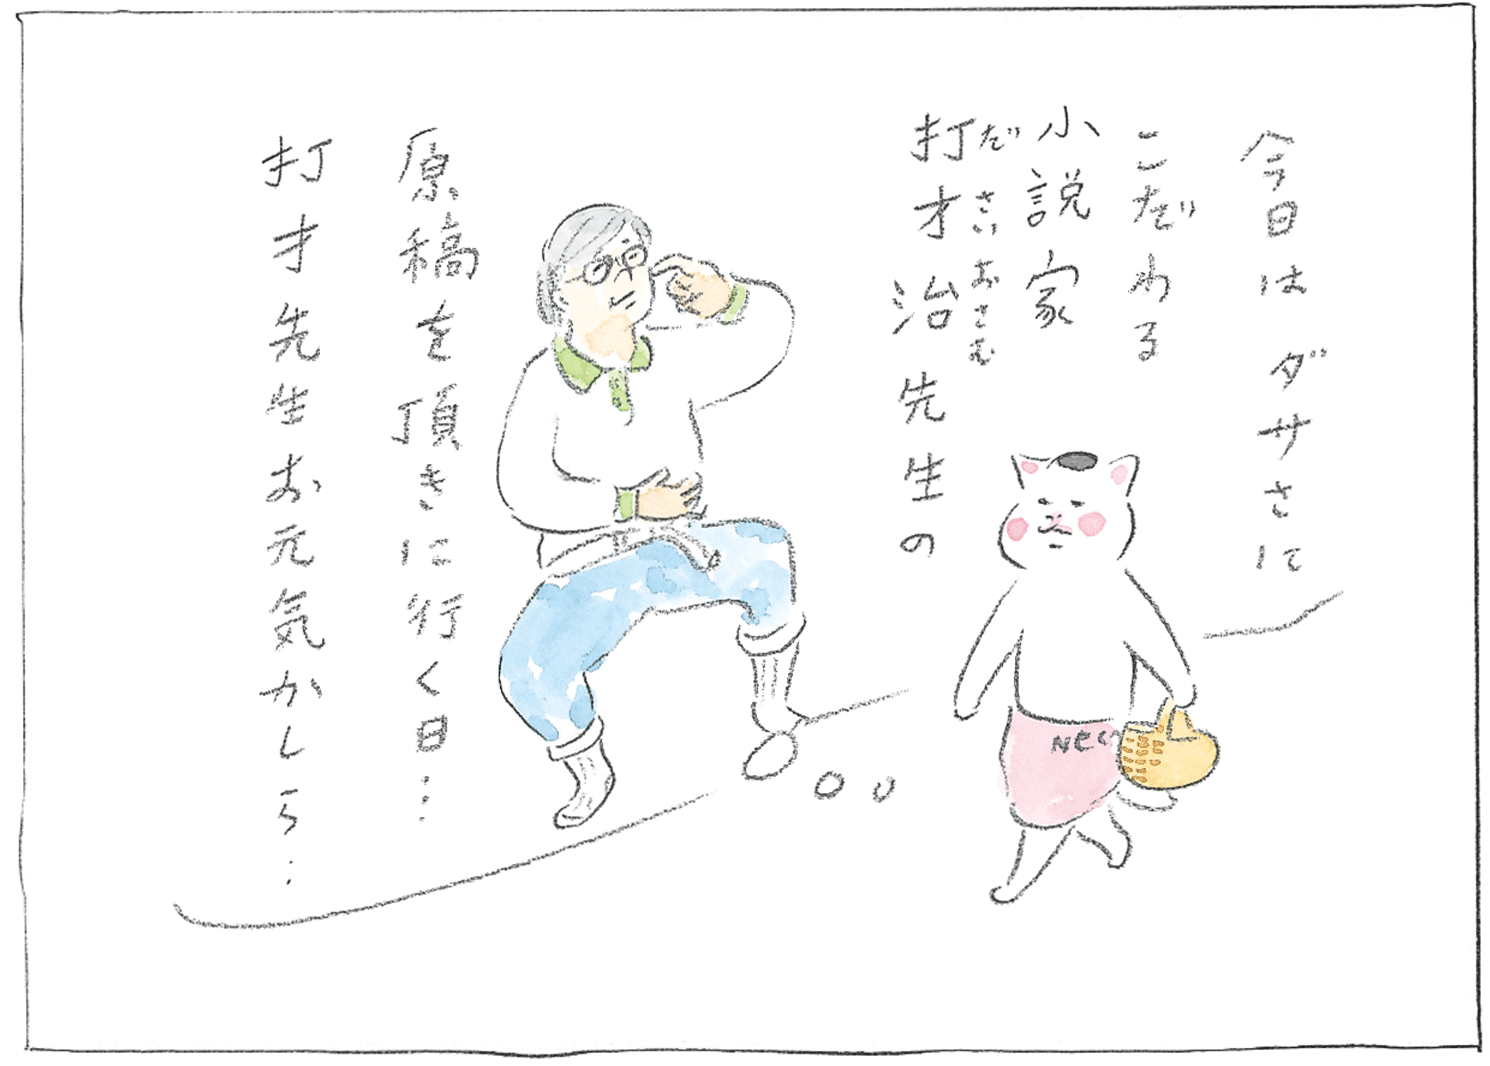 今日は ダサさに
こだわる
小説家
打才治先生の
だ さい おさむ
原稿を頂きに行く日…
打才先生お元気かしら…
NECO